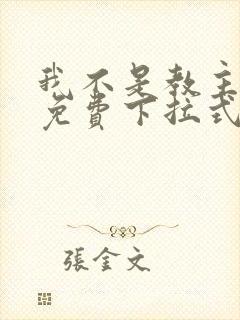 我不是教主
免費下拉式
張金文